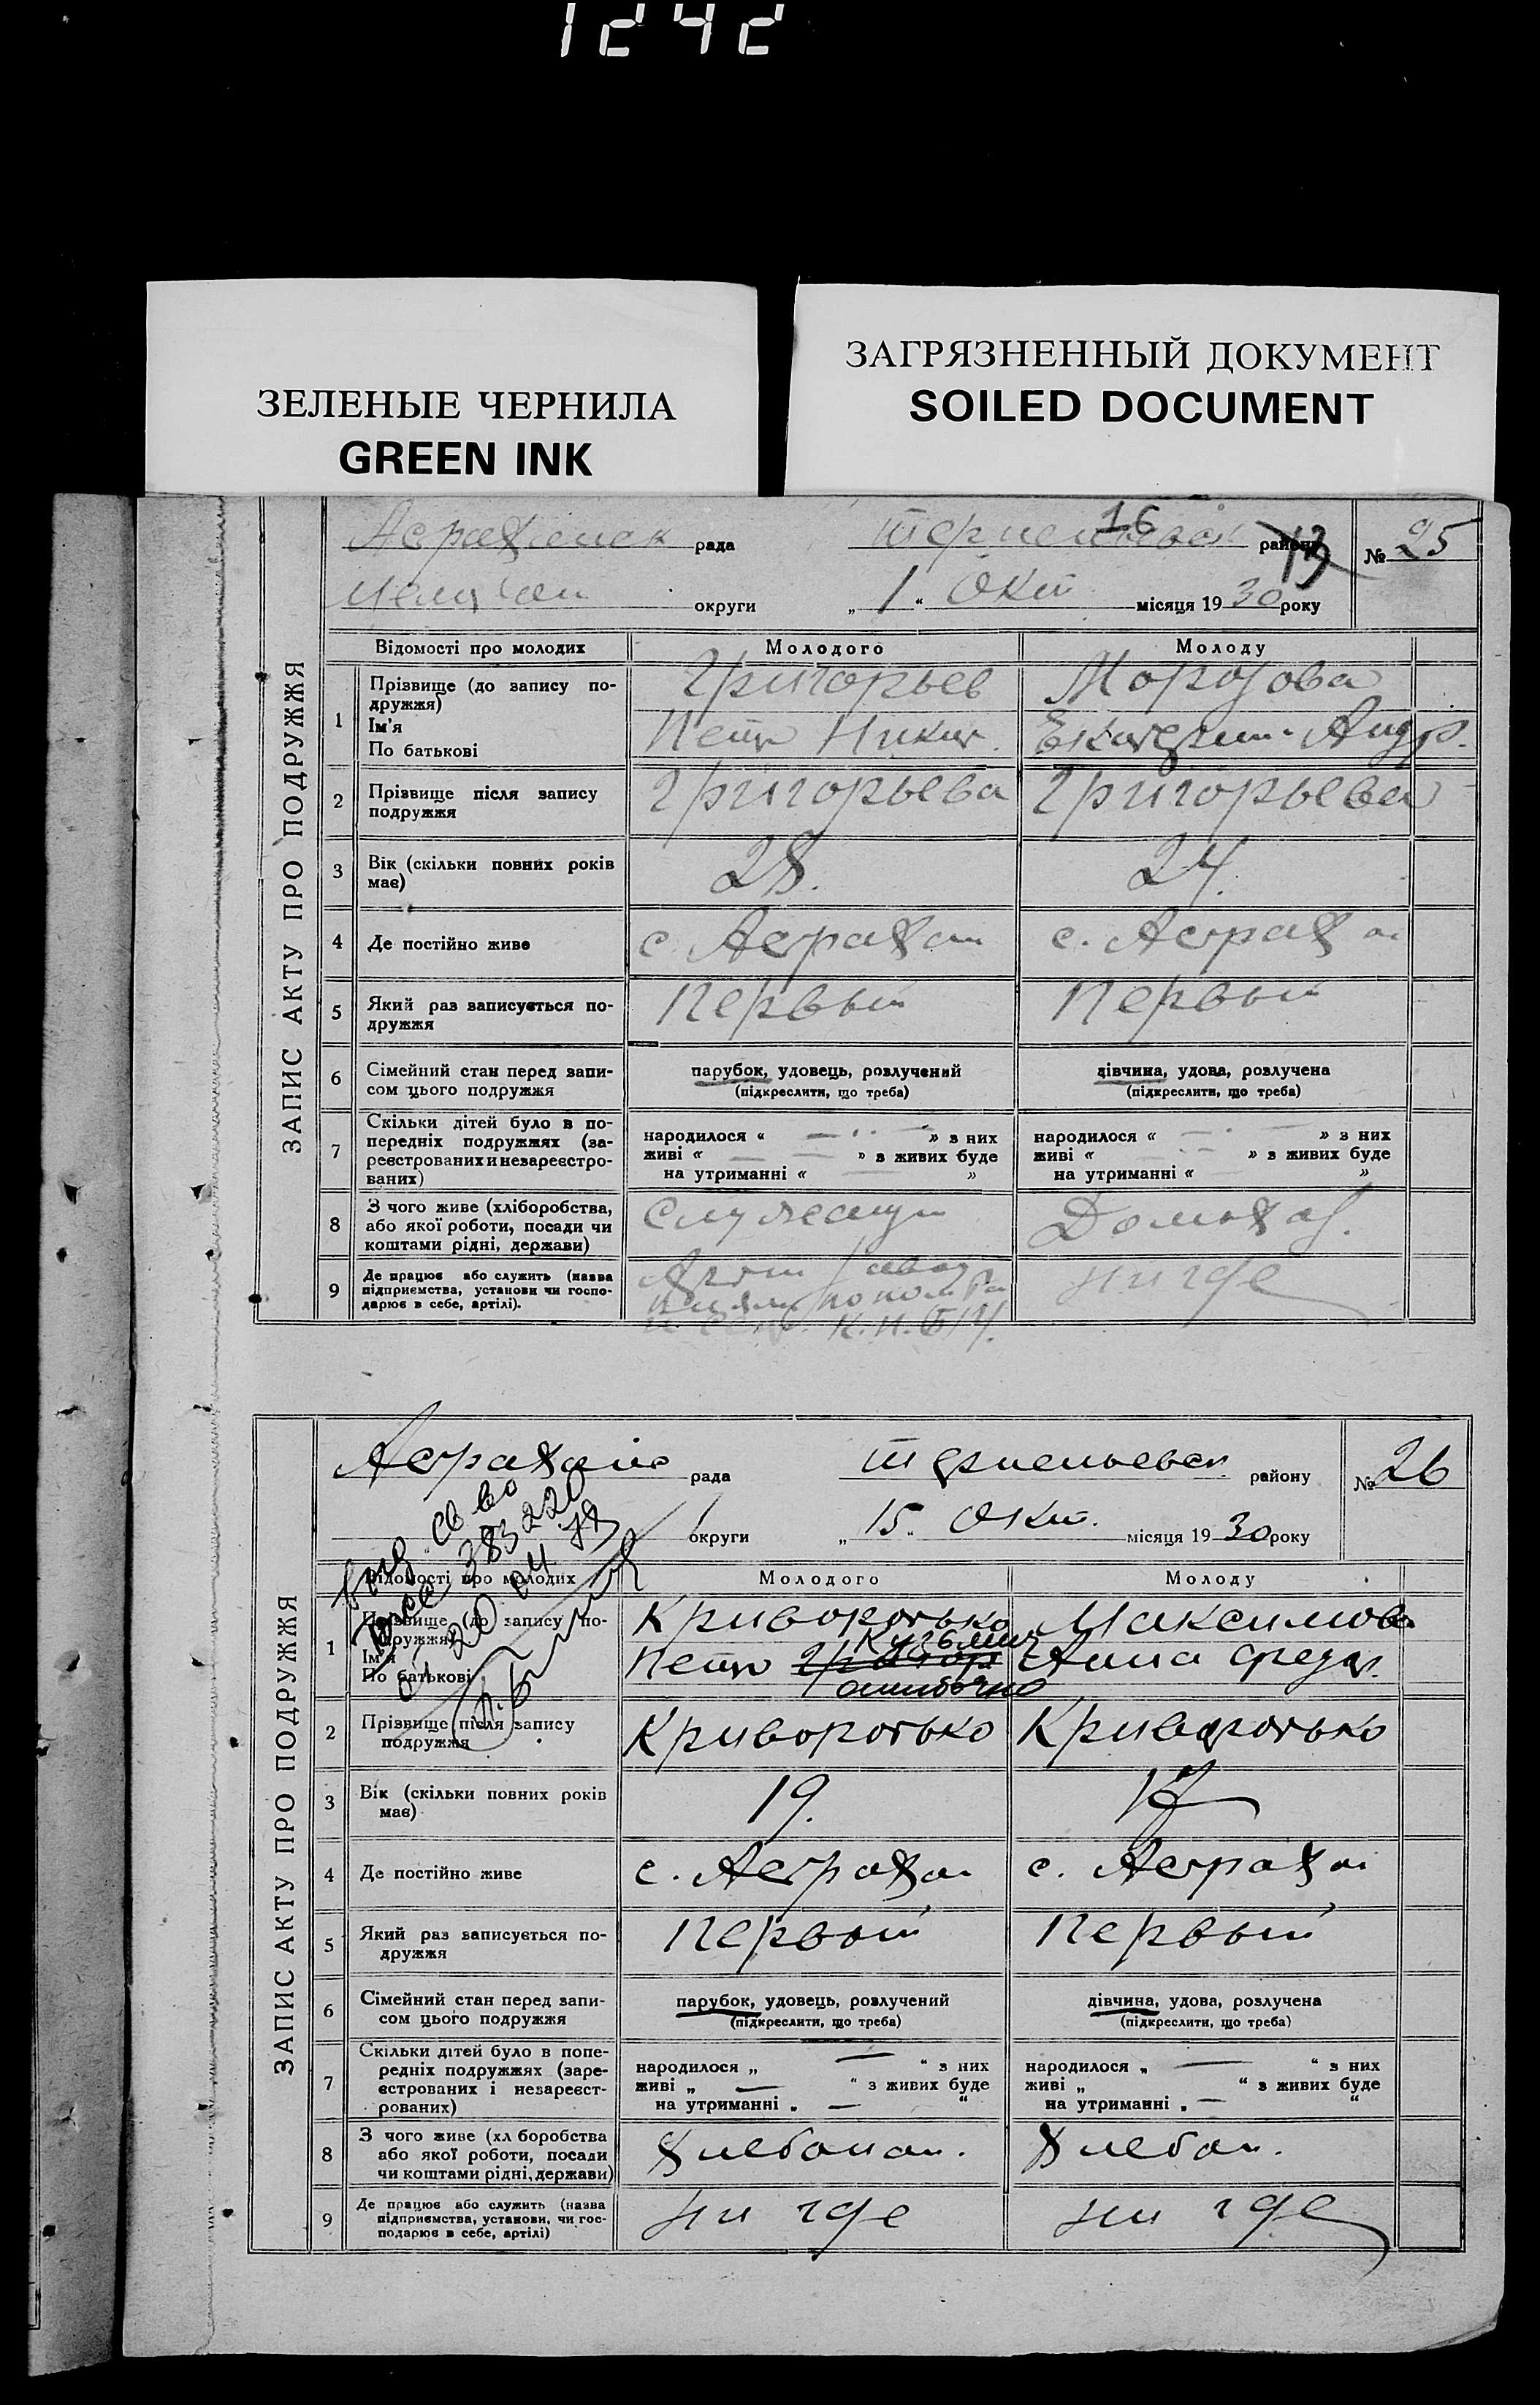 1242
ЗЕЛЕНЫЕ ЧЕРНИЛА
GREEN INK
ЗАГРЯЗНЕННЫЙ ДОКУМЕНТ
SOILED DOCUMENT
ЗАПИС АКТУ ПРО ПОДРУЖЖЯ
рада 16 району 13 № 25
округи „ 1 “ Окт місяця 19 30 року
Відомості про молодих Молодого Молоду
1 Прізвище (до запису по- Григорьев Морозова
дружжя)
Ім'я Петр Никит. Екатерин. Андр.
По батькові
2 Прізвище після запису Григорьева Григорьева
подружжя
3 Вік (скільки повних років 28. 24.
має)
4 Де постійно живе с. Астрахан с. Астрахан
5 Який раз записується по- Первый Первый
дружжя
6 Сімейний стан перед запи- парубок, удовець, розлучений дівчина, удова, розлучена
сом цього подружжя (підкреслити, що треба) (підкреслити, що треба)
7 Скільки дітей було в по-
передніх подружжях (за- народилося « — » з них народилося « — » з них
реєстрованих и незареєстро- живі « — » з живих буде живі « — » з живих буде
ваних) на утриманні « — » на утриманні « »
8 З чого живе (хліборобства, Служащи Домохоз.
або якої роботи, посади чи
коштами рідні, держави)
9 Де працює або служить (назва нигде
підприємства, установи чи госпо-
дарює в себе, артілі).
ЗАПИС АКТУ ПРО ПОДРУЖЖЯ
рада району № 26
округи „ 15 “ Окт. місяця 19 30 року
383220
Відомості про молодих Молодого Молоду
1 Прізвище (до запису по- Криворотько Максимова
дружжя) Кузьмич
Ім'я Петр Григор Анна Федор.
По батькові ошибочно
2 Прізвище після запису Криворотько Криворотько
подружжя
3 Вік (скільки повних років 19. 17
має)
4 Де постійно живе с. Астрахан с. Астрахан
5 Який раз записується по- Первый Первый
дружжя
6 Сімейний стан перед запи- парубок, удовець, розлучений дівчина, удова, розлучена
сом цього подружжя (підкреслити, що треба) (підкреслити, що треба)
7 Скільки дітей було в попе-
редніх подружжях (заре- народилося „ — “ з них народилося „ — “ з них
єстрованих і незареєст- живі „ — “ з живих буде живі „ “ з живих буде
рованих) на утриманні „ — “ на утриманні „ — “
8 З чого живе (хл боробства Хлебопаш. Хлебоп.
або якої роботи, посади
чи коштами рідні, держави)
9 Де працює або служить (назва ни где ни где
підприємства, установи, чи гос-
подарює в себе, артілі)